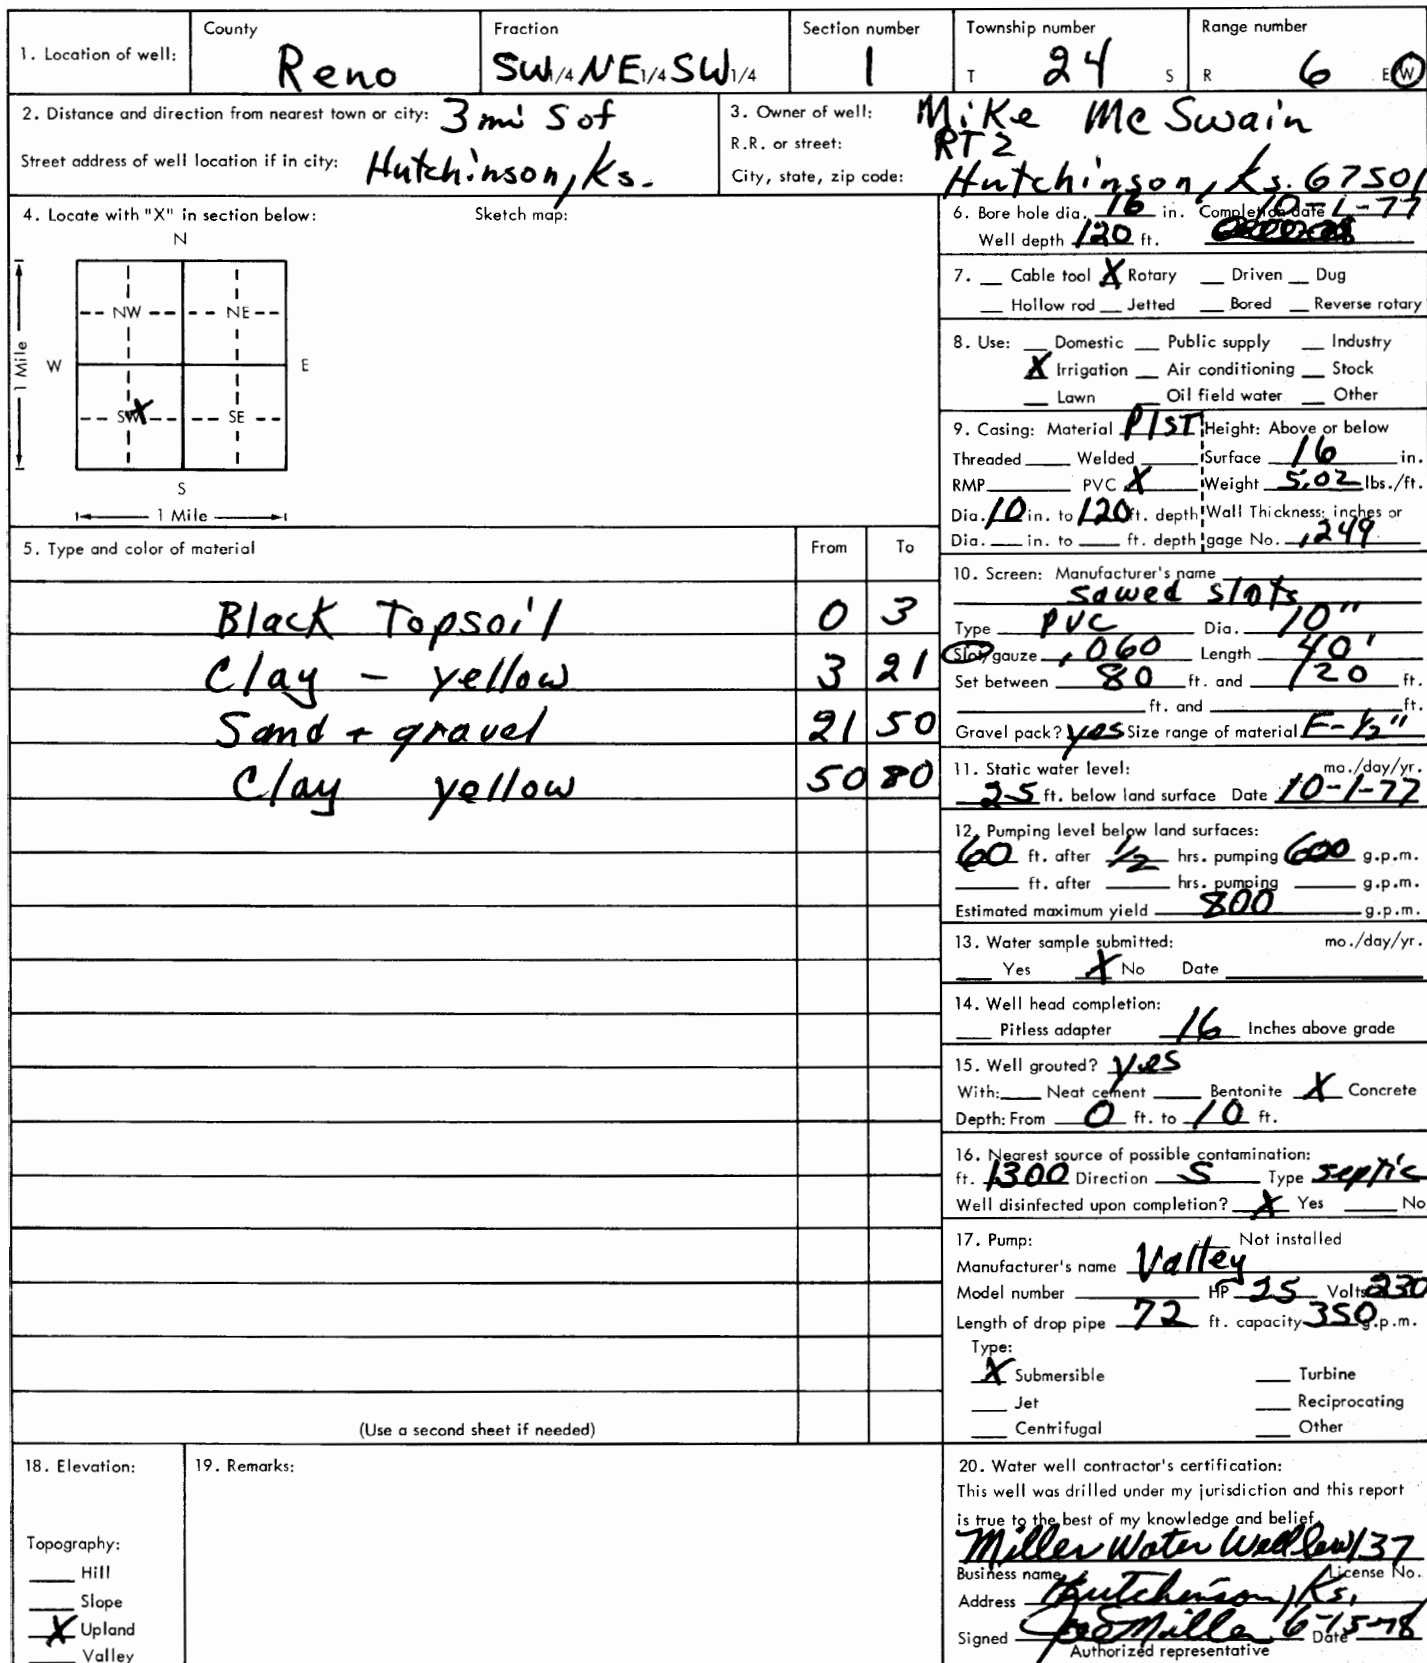 1. Location of well: County Reno Fraction SW 1/4 NE 1/4 SW 1/4 Section number 1 Township number T 24 S Range number R 6 E W
2. Distance and direction from nearest town or city: 3 mi S of
Street address of well location if in city: Hutchinson, Ks.
3. Owner of well: Mike McSwain
R.R. or street: RT 2
City, state, zip code: Hutchinson, Ks. 67501
4. Locate with "X" in section below: Sketch map:
N
NW NE
W E
1 Mile
SW X SE
S
1 Mile
5. Type and color of material From To
Black Topsoil 0 3
Clay - yellow 3 21
Sand + gravel 21 50
Clay yellow 50 80
(Use a second sheet if needed)
6. Bore hole dia. 16 in. Completion date 10-1-77
Well depth 120 ft.
7. Cable tool X Rotary Driven Dug
Hollow rod Jetted Bored Reverse rotary
8. Use: Domestic Public supply Industry
X Irrigation Air conditioning Stock
Lawn Oil field water Other
9. Casing: Material PlST Height: Above or below
Threaded Welded Surface 16 in.
RMP PVC X Weight 5.02 lbs./ft.
Dia. 10 in. to 120 ft. depth Wall Thickness: inches or
Dia. in. to ft. depth gage No. .249
10. Screen: Manufacturer's name
sawed slots
Type PVC Dia. 10"
Slot/gauze .060 Length 40'
Set between 80 ft. and 120 ft.
ft. and ft.
Gravel pack? yes Size range of material F-1/2"
11. Static water level: mo./day/yr.
25 ft. below land surface Date 10-1-77
12. Pumping level below land surfaces:
60 ft. after 1/2 hrs. pumping 600 g.p.m.
ft. after hrs. pumping g.p.m.
Estimated maximum yield 800 g.p.m.
13. Water sample submitted: mo./day/yr.
Yes X No Date
14. Well head completion:
Pitless adapter 16 Inches above grade
15. Well grouted? yes
With: Neat cement Bentonite X Concrete
Depth: From 0 ft. to 10 ft.
16. Nearest source of possible contamination:
ft. 1300 Direction S Type septic
Well disinfected upon completion? X Yes No
17. Pump: Not installed
Manufacturer's name Valley
Model number HP 25 Volts 230
Length of drop pipe 72 ft. capacity 350 g.p.m.
Type:
X Submersible Turbine
Jet Reciprocating
Centrifugal Other
18. Elevation:
Topography:
Hill
Slope
X Upland
Valley
19. Remarks:
20. Water well contractor's certification:
This well was drilled under my jurisdiction and this report
is true to the best of my knowledge and belief.
Miller Water Well 137
Business name License No.
Address Hutchinson, Ks.
Signed Joe Miller Date 6-15-78
Authorized representative